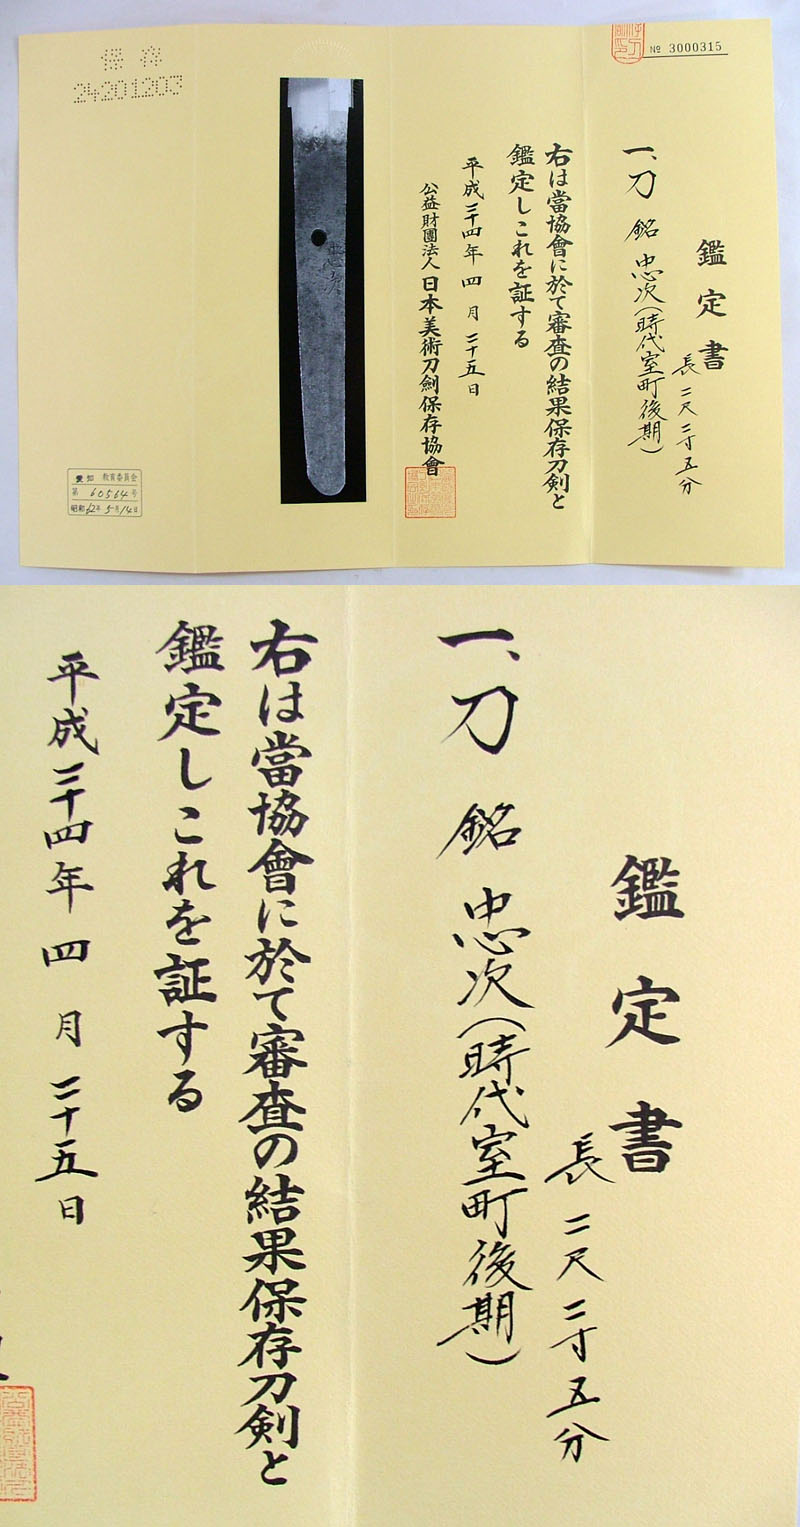 № 3000315
鑑定書
長二尺二寸五分
一、刀 銘 忠次(時代室町後期)
右は當協會に於て審査の結果保存刀剣と
鑑定しこれを証する
平成二十四年四月二十五日
公益財團法人日本美術刀劍保存協會
保存
24201203
愛知 教育委員会
第60564号
昭和62年5月14日
鑑定書
長二尺二寸五分
一、刀 銘 忠次(時代室町後期)
右は當協會に於て審査の結果保存刀剣と
鑑定しこれを証する
平成二十四年四月二十五日